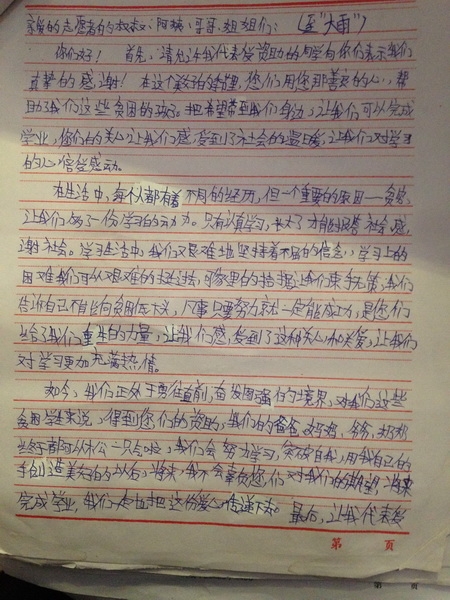 亲爱的志愿者的叔叔、阿姨、哥哥、姐姐们：（至“大雨”）
你们好！首先，请允许我代表受资助的同学向你们表示我们
真挚的感谢！在这个的季节里，您们用您那善良的心，帮
助我们这些贫困的孩子。把希望带到我们身边，让我们可以完成
学业，你们的关心让我们感受到了社会的温暖，让我们对学习
的心倍受感动。
在生活中，每个人都有着不同的经历，但一个重要的原因——贫穷，
让我们多了一份学习的动力。只有认真学习，长大了才有能回答社会，感
谢社会。学习生活中，我们艰难地坚持着不屈的信念，学习上的
困难我们可以艰难的过去，可家里的拮据让我们束手无策，我们
告诉自己不能向贫困低头，凡事只要努力就一定能成功，是您们
给了我们重生的力量，让我们感受到了这种关心和关爱，让我们
对学习更加充满热情。
如今，我们正处于勇往直前，奋发图强的境界，对我们这些
贫困学生来说，得到您们的资助，我们的爸爸、妈妈、爷爷、奶奶
终于都可以松一口气啦，我们会努力学习，突破自我，用我自己的
手创造美好的以后，将来我不会辜负您们对我们的期望，将来
完成学业，我们一定也把这份爱心传递下去。最后，让我代表受
第 页
第 页